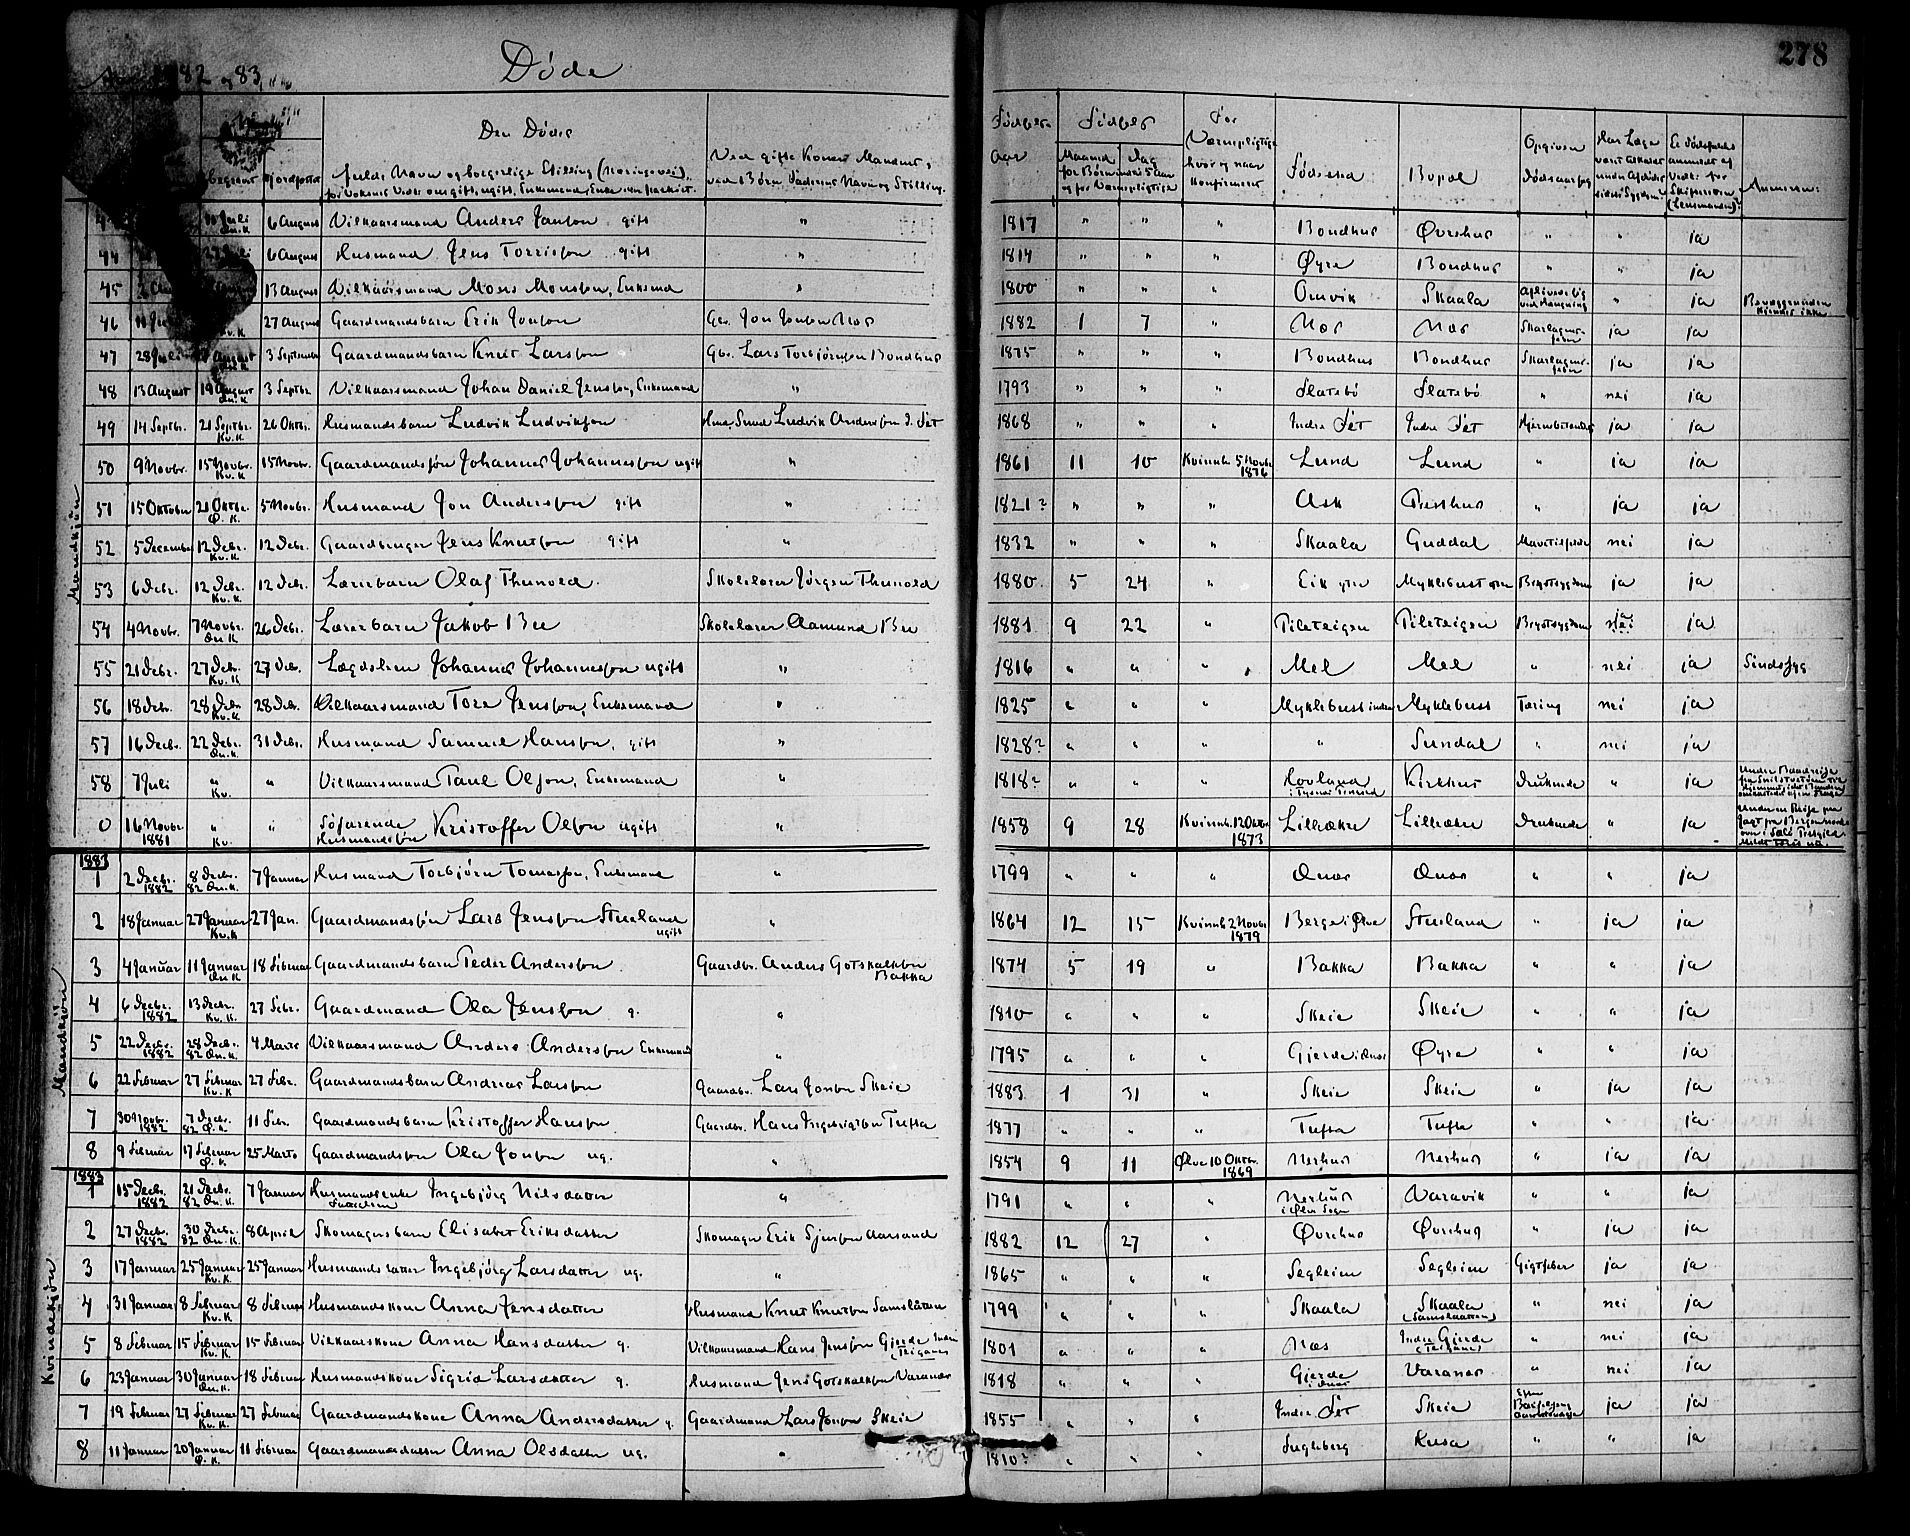 1882 og 83.
Døde
278
begravet
Den Dødes
fulde Navn og borgerlige Stilling (Næringsvei),
Ved gifte Koner Mandens,
ved Børn Faderens Navn og Stilling.
Fødsels-
Aar
Fødsels
Maaned
Dag
for Børn under 5 Aar
og for Værnepligtige
For
Værnepligtige
hvor og naar
konfirmeret
Fødested
Bopæl
Opgiven
Dødsaarsag
Har Læge
Er Dødsfaldet
anmeldt af
Vedk: for
Skifteretten
(Lensmanden)?
Anmærkn:
Mandkjøn
6 August Vilkaarsmand Anders Janson gift " 1817 " " " Bondhus Øvrehus " " ja
44 6 August Husmand Jens Torrisson gift " 1814 " " " Øyre Bondhus " " ja
45 13 August Vilkaarsmand Moses Monsson, Enkemd " 1800 " " " Omvik Skaala ved Hængning " ja Bevæggrunden kjendes ikke
46 27 August Gaardmandsbarn Erik Jonson Gbr. Jon Jonson Nes 1882 1 7 " Nes Nes Skarlagensfeber ja ja
47 28 Juli August 3 September Gaardmandsbarn Knut Larsson Gbr. Lars Torbjørnson Bondhus 1875 " " " Bondhus Bondhus Skarlagensfeber ja ja
48 13 August 19 August 3 Septbr. Vilkaarsmand Johan Daniel Jensson, Enkemand " 1793 " " " Flatebø Flatebø " nei ja
49 14 Septbr. 21 Septbr. Kv.K. 26 Oktbr. Husmandsbarn Ludvik Ludvikson Husmd Ludvik Anderson I. Set 1868 " " " Indre Set Indre Set Hjernebetændelse ja ja
50 9 Novbr. 15 Novbr. Kv.K. 15 Novbr. Gaardmandssøn Johannes Johannesson ugift " 1861 11 10 Kvinnh. 5 Novbr 1876 Lund Lund " ja ja
51 15 Oktober 21 Oktbr. Ø.K. 5 Novbr. Husmand Jon Anderson gift " 1821? " " " Ask Presthus " ja ja
52 5 December 12 Decbr. Kv.K. 12 Decbr. Gaardbruger Jens Knutson gift " 1832 " " " Skaala Guddal Mavetilfælde nei ja
53 6 Decbr. 12 Decbr. Kv.K. 12 Decbr. Lærerbarn Olaf Thunold Skolelærer Jørgen Thunold 1880 5 24 " Eik ytre Myklebust ytre Brystsygdom ja ja
54 4 Novbr. 7 Novbr. Æn.K 26 Decbr. Lærerbarn Jakob Bu Skolelærer Aamund Bu 1881 9 22 " Pileteigen Pileteigen Brystsygdom ja
55 21 Decbr. 27 Decbr. Kv.K 27 Decbr. Lægdslem Johannes Johannesson ugift " 1816 " " " Mel Mel " nei ja Sindssyg
56 18 Decbr. 28 Decbr. Kv.K. 28 Decbr. Vilkaarsmand Tore Jensson, Enkemand " 1825 " " " Myklebust indre Myklebust Tæring nei ja
57 16 Decbr. 22 Decbr. Æn.K. 31 Decbr. Husmand Samuel Hanson, gift " 1828? " " " " Sundal " nei ja
58 7 Juli " Kv. " Vilkaarsmand Paul Olson, Enkemand " 1818? " " " Hovland i Tysnes Prestegd Kirkhus Druknede " ja
0 16 Novbr 1881 " Kv. " Søfarende Husmandssøn Kristoffer Olson ugift " 1858 9 28 Kvinnh. 12 Oktbr 1873 Lilleækre Lilleækre Druknede " ja
1883
Mandkjøn
1 2 Decbr. 1882 8 Decbr. 82 Æn.K. 7 Januar Husmand Torbjørn Tomasson, Enkemand " 1799 " " " Ænes Ænes " " ja
2 18 Januar 27 Januar Kv.K 27 Jan. Gaardmandssøn Lars Jensson Stueland ugift " 1864 12 15 Kvinnh 2 Novbr 1879 Berge i Ølve Stueland " ja ja
3 4 Januar 11 Januar Æn.K 18 Februar Gaardmandsbarn Peder Anderson Gaardbr. Anders Gotskalkson Bakka 1874 5 19 " Bakka Bakka " " ja
4 6 Decbr. 1882 13 Decbr. Kv.K. 27 Febr. Gaardmand Ola Jensson g. " 1810 " " " Skeie Skeie " " ja
5 22 Decbr. 1882 28 Decbr. 82 Æn.K. 4 Marts Vilkaarsmand Anders Anderson Enkemand " 1795 " " " Gjerde i Ænes Øyre " " ja
6 22 Februar 27 Februar Kv.K. 27 Febr. Gaardmandsbarn Andreas Larsson Gaardbr. Lars Jonson Skeie 1883 1 31 " Skeie Skeie " ja ja
7 30 Novbr. 1882 7 Decbr. 82 Ø.K. 11 Febr. Gaardmandsbarn Kristoffer Hanson Gaardbr. Hans Ingebrigtson Tufta 1877 " " " Tufta Tufta " " ja
8 9 Februar 17 Februar Ø.K. 25 Marts Gaardmandssøn Ola Jonson ug. " 1854 9 11 Ølve 10 Oktbr. 1869 Nerhus Nerhus " ja ja
1883
Kvindekjøn
1 15 Decbr. 1882 21 Decbr. 82 Æn.K. 7 Januar Husmandsenke Ingebjørg Nilsdatter " 1791 " " " Nerhus i Ølve Sogn Varavik " " ja
2 27 Decbr. 1882 30 Decbr. 82 Æn.K. 8 April Skomagersbarn Elisabet Eriksdatter Skomager Erik Sjurson Aarsand 1882 12 27 " Øvrehus Øvrehus " ja ja
3 17 Januar 25 Januar Kv.K. 25 Januar Husmandsdatter Ingebjørg Larsdatter ug. " 1865 " " " Segleim Segleim Gigtfeber ja ja
4 31 Januar 8 Februar Kv.K 8 Februar Husmandskone Anna Jensdatter Husmand Knut Knutson Samslåtten 1799 " " " Skaala Skaala (Samslaatten) " nei ja
5 8 Februar 15 Februar Kv.K. 15 Februar Vilkaarskone Anna Hansdatter g. Vilkaarsmand Hans Jensson Gjerde Indre (Teigane) 1801 " " " Næs Indre Gjerde (Teigane) " nei ja
6 23 Januar 30 Januar Æn.K. 18 Februar Husmandskone Sigrid Larsdatter g. Husmand Jens Gotskalkson Varanes 1818 " " " Gjerde i Ænes Varanes " nei ja
7 19 Februar 27 Februar Kv.K. 27 Februar Gaardmandskone Anna Andersdatter g. Gaardmand Lars Jonson Skeie 1855 " " " Indre Set Skeie Efter Barselseng ja ja
8 11 Januar 20 Januar Ø.K. 11 Februar Gaardmandsdatter Anna Olsdatter ug. " 1810? " " " Sugleberg Kusa " " ja